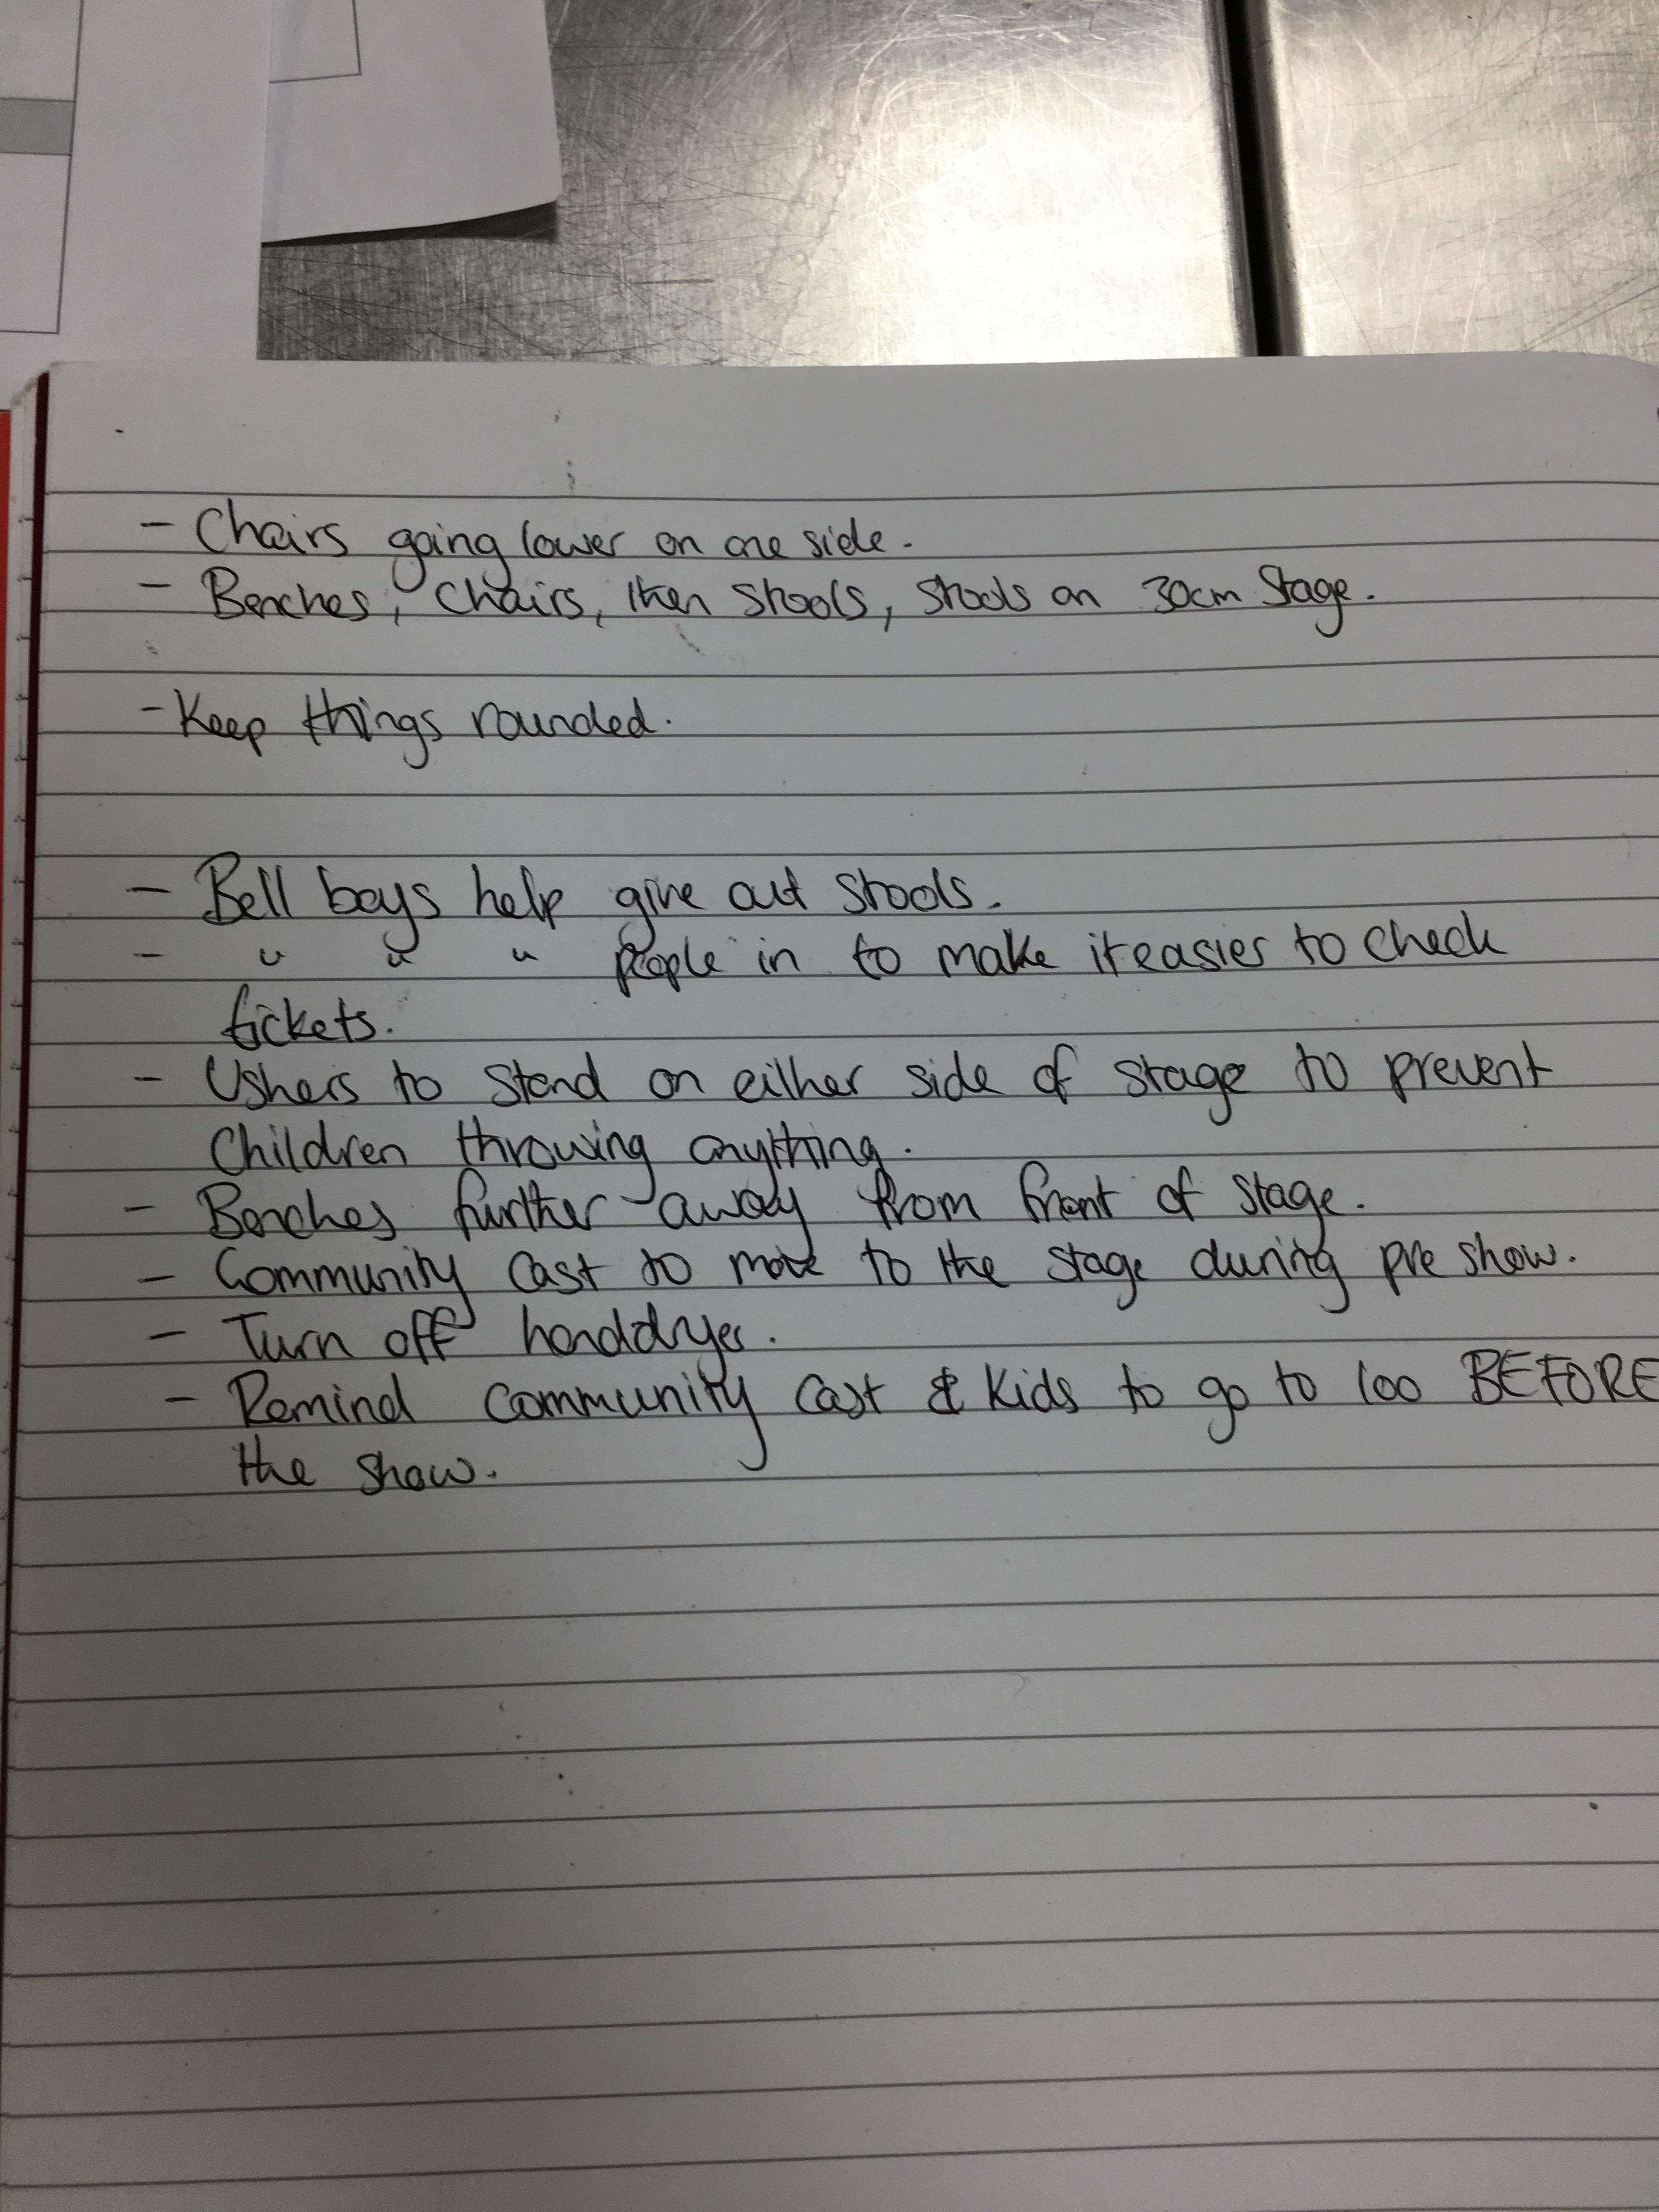 - Chairs going lower on one side.
- Benches, Chairs, then stools, stools on 30cm Stage.
- Keep things rounded.
- Bell boys help give out stools.
- " " " people in to make it easier to check
tickets.
- Ushers to stand on either side of stage to prevent
Children throwing anything.
- Benches further away from front of stage.
- Community Cast to move to the stage during pre show.
- Turn off handdryer.
- Remind Community Cast & Kids to go to loo BEFORE
the show.